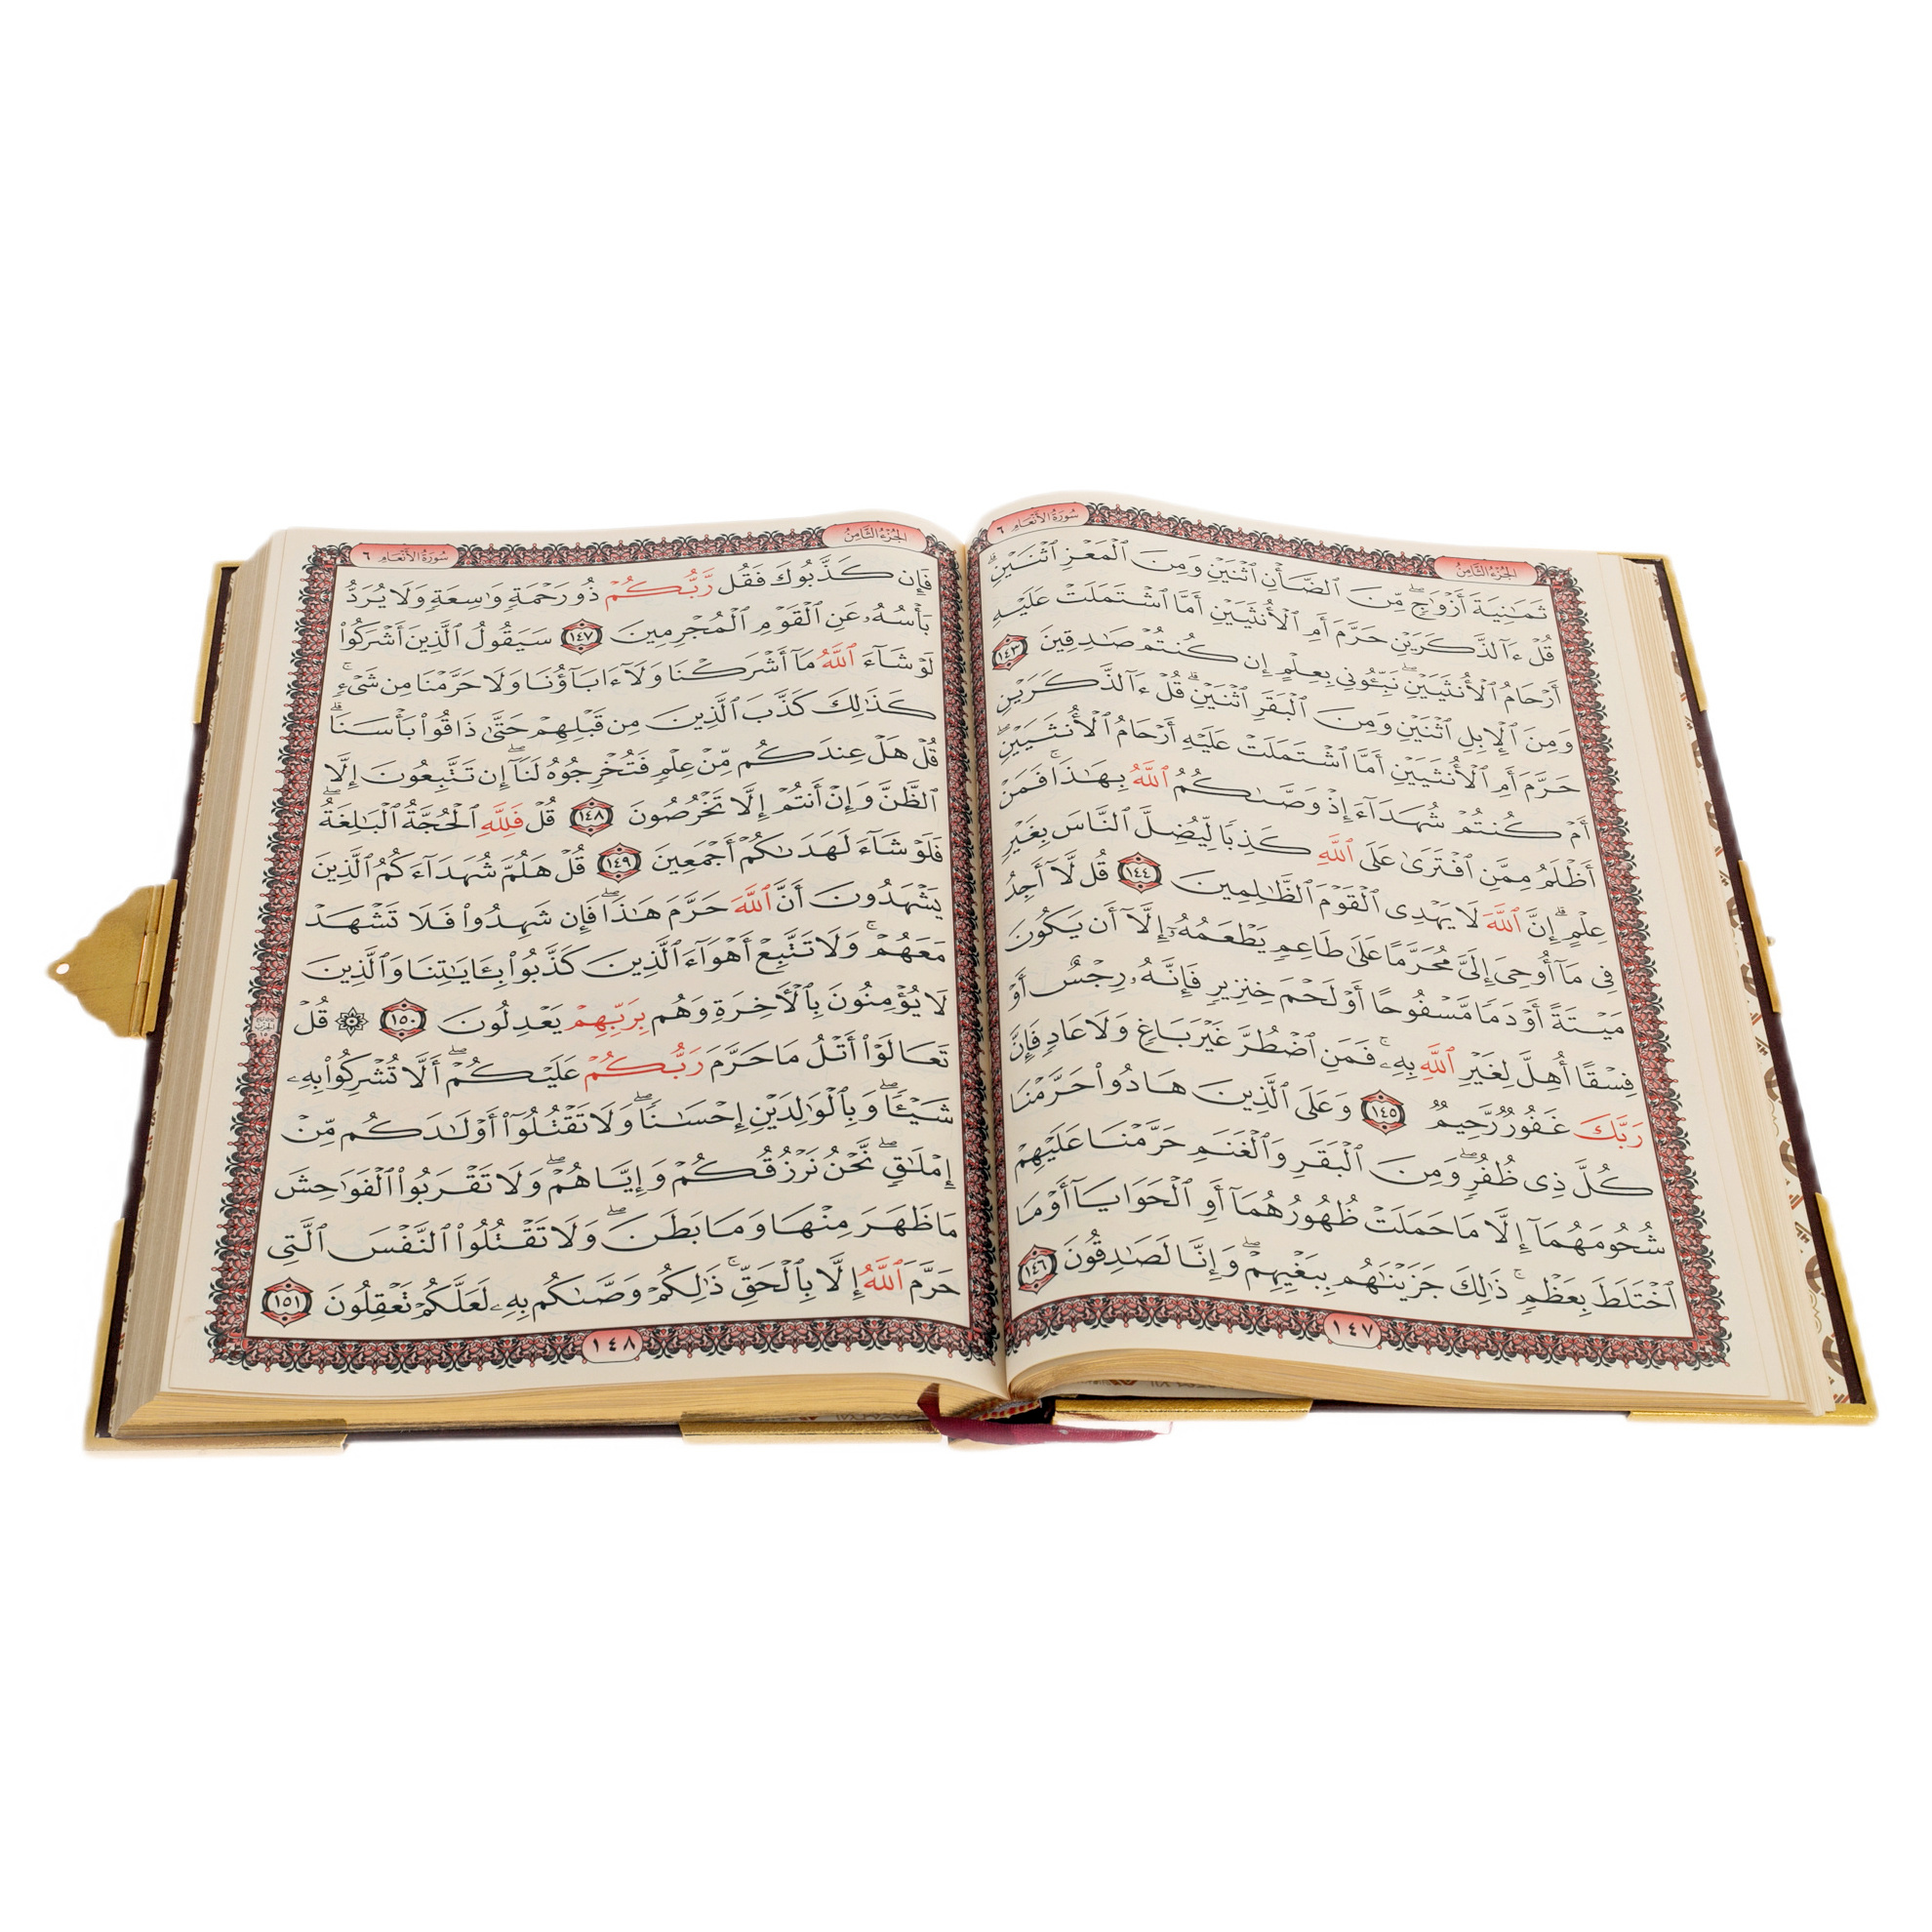 سُورَةُ الأَنْعَامِ ٦
الجُزْءُ الثَّامِنُ
ثَمَٰنِيَةَ أَزْوَٰجٍ ۖ مِّنَ ٱلضَّأْنِ ٱثْنَيْنِ وَمِنَ ٱلْمَعْزِ ٱثْنَيْنِ ۗ
قُلْ ءَآلذَّكَرَيْنِ حَرَّمَ أَمِ ٱلْأُنثَيَيْنِ أَمَّا ٱشْتَمَلَتْ عَلَيْهِ
أَرْحَامُ ٱلْأُنثَيَيْنِ ۖ نَبِّـُٔونِى بِعِلْمٍ إِن كُنتُمْ صَٰدِقِينَ ١٤٣
وَمِنَ ٱلْإِبِلِ ٱثْنَيْنِ وَمِنَ ٱلْبَقَرِ ٱثْنَيْنِ ۗ قُلْ ءَآلذَّكَرَيْنِ
حَرَّمَ أَمِ ٱلْأُنثَيَيْنِ أَمَّا ٱشْتَمَلَتْ عَلَيْهِ أَرْحَامُ ٱلْأُنثَيَيْنِ ۖ
أَمْ كُنتُمْ شُهَدَآءَ إِذْ وَصَّىٰكُمُ ٱللَّهُ بِهَٰذَا ۚ فَمَنْ
أَظْلَمُ مِمَّنِ ٱفْتَرَىٰ عَلَى ٱللَّهِ كَذِبًا لِّيُضِلَّ ٱلنَّاسَ بِغَيْرِ
عِلْمٍ ۗ إِنَّ ٱللَّهَ لَا يَهْدِى ٱلْقَوْمَ ٱلظَّٰلِمِينَ ١٤٤ قُل لَّآ أَجِدُ
فِى مَآ أُوحِىَ إِلَىَّ مُحَرَّمًا عَلَىٰ طَاعِمٍ يَطْعَمُهُۥٓ إِلَّآ أَن يَكُونَ
مَيْتَةً أَوْ دَمًا مَّسْفُوحًا أَوْ لَحْمَ خِنزِيرٍ فَإِنَّهُۥ رِجْسٌ أَوْ
فِسْقًا أُهِلَّ لِغَيْرِ ٱللَّهِ بِهِۦ ۚ فَمَنِ ٱضْطُرَّ غَيْرَ بَاغٍ وَلَا عَادٍ فَإِنَّ
رَبَّكَ غَفُورٌ رَّحِيمٌ ١٤٥ وَعَلَى ٱلَّذِينَ هَادُوا۟ حَرَّمْنَا
كُلَّ ذِى ظُفُرٍ ۖ وَمِنَ ٱلْبَقَرِ وَٱلْغَنَمِ حَرَّمْنَا عَلَيْهِمْ
شُحُومَهُمَآ إِلَّا مَا حَمَلَتْ ظُهُورُهُمَآ أَوِ ٱلْحَوَايَآ أَوْ مَا
ٱخْتَلَطَ بِعَظْمٍ ۚ ذَٰلِكَ جَزَيْنَٰهُم بِبَغْيِهِمْ ۖ وَإِنَّا لَصَٰدِقُونَ ١٤٦
١٤٧
الجُزْءُ الثَّامِنُ
سُورَةُ الأَنْعَامِ ٦
فَإِن كَذَّبُوكَ فَقُل رَّبُّكُمْ ذُو رَحْمَةٍ وَٰسِعَةٍ وَلَا يُرَدُّ
بَأْسُهُۥ عَنِ ٱلْقَوْمِ ٱلْمُجْرِمِينَ ١٤٧ سَيَقُولُ ٱلَّذِينَ أَشْرَكُوا۟
لَوْ شَآءَ ٱللَّهُ مَآ أَشْرَكْنَا وَلَآ ءَابَآؤُنَا وَلَا حَرَّمْنَا مِن شَىْءٍ ۚ
كَذَٰلِكَ كَذَّبَ ٱلَّذِينَ مِن قَبْلِهِمْ حَتَّىٰ ذَاقُوا۟ بَأْسَنَا ۗ
قُلْ هَلْ عِندَكُم مِّنْ عِلْمٍ فَتُخْرِجُوهُ لَنَآ ۖ إِن تَتَّبِعُونَ إِلَّا
ٱلظَّنَّ وَإِنْ أَنتُمْ إِلَّا تَخْرُصُونَ ١٤٨ قُلْ فَلِلَّهِ ٱلْحُجَّةُ ٱلْبَٰلِغَةُ ۖ
فَلَوْ شَآءَ لَهَدَىٰكُمْ أَجْمَعِينَ ١٤٩ قُلْ هَلُمَّ شُهَدَآءَكُمُ ٱلَّذِينَ
يَشْهَدُونَ أَنَّ ٱللَّهَ حَرَّمَ هَٰذَا ۖ فَإِن شَهِدُوا۟ فَلَا تَشْهَدْ
مَعَهُمْ ۚ وَلَا تَتَّبِعْ أَهْوَآءَ ٱلَّذِينَ كَذَّبُوا۟ بِـَٔايَٰتِنَا وَٱلَّذِينَ
لَا يُؤْمِنُونَ بِٱلْـَٔاخِرَةِ وَهُم بِرَبِّهِمْ يَعْدِلُونَ ١٥٠ ۞ قُلْ
تَعَالَوْا۟ أَتْلُ مَا حَرَّمَ رَبُّكُمْ عَلَيْكُمْ ۖ أَلَّا تُشْرِكُوا۟ بِهِۦ
شَيْـًٔا ۖ وَبِٱلْوَٰلِدَيْنِ إِحْسَٰنًا ۖ وَلَا تَقْتُلُوٓا۟ أَوْلَٰدَكُم مِّنْ
إِمْلَٰقٍ ۖ نَّحْنُ نَرْزُقُكُمْ وَإِيَّاهُمْ ۖ وَلَا تَقْرَبُوا۟ ٱلْفَوَٰحِشَ
مَا ظَهَرَ مِنْهَا وَمَا بَطَنَ ۖ وَلَا تَقْتُلُوا۟ ٱلنَّفْسَ ٱلَّتِى
حَرَّمَ ٱللَّهُ إِلَّا بِٱلْحَقِّ ۚ ذَٰلِكُمْ وَصَّىٰكُم بِهِۦ لَعَلَّكُمْ تَعْقِلُونَ ١٥١
١٤٨